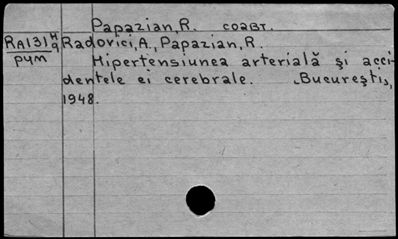 Papazian, R. соавт.
RA131 H9 Radovici, A., Papazian, R.
рум Hipertensiunea arterială şi acci-
dentele ei cerebrale. Bucureşti,
1948.